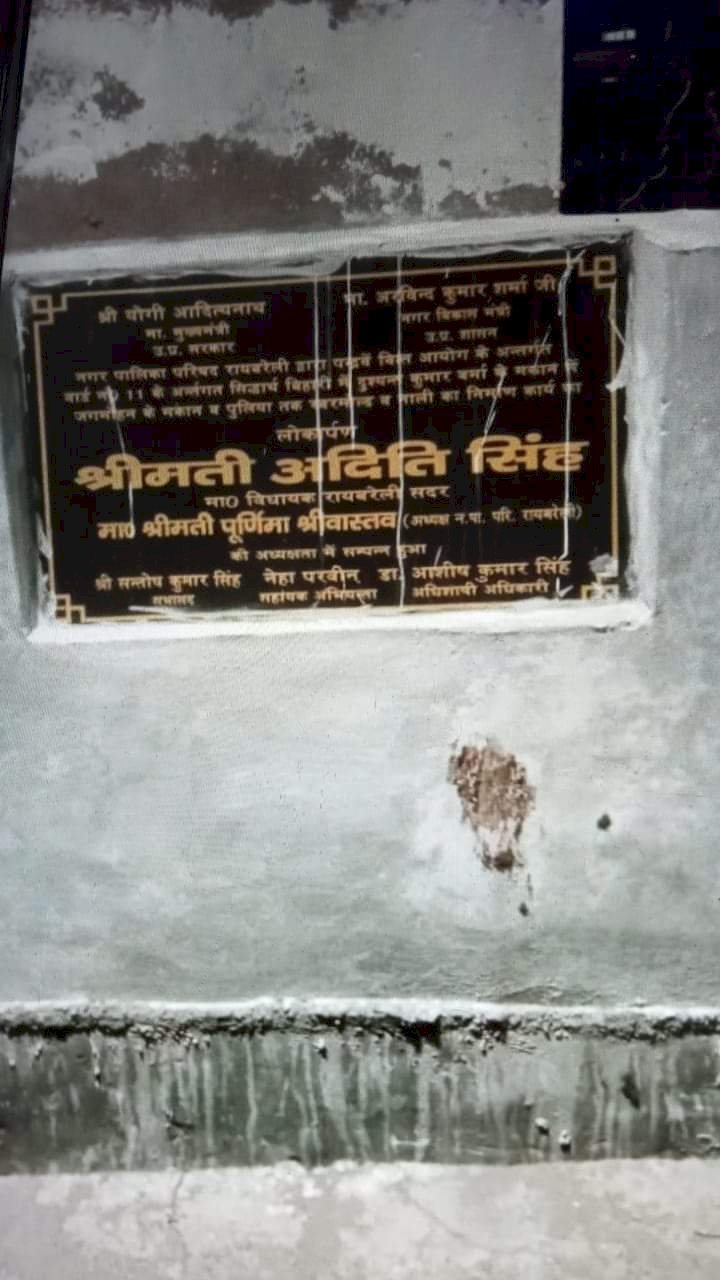 श्री योगी आदित्यनाथ
मा. मुख्यमंत्री
उ.प्र. सरकार
मा. अरविन्द कुमार शर्मा जी
नगर विकास मंत्री
उ.प्र. शासन
नगर पालिका परिषद रायबरेली द्वारा पन्द्रवें वित्त आयोग के अन्तर्गत
वार्ड नं0 11 के अर्न्तगत सिद्धार्थ बिहारी में दुश्यन्त कुमार वर्मा के मकान से
जगमोहन के मकान व पुलिया तक व नाली का निर्माण कार्य का
लोकार्पण
श्रीमती अदिति सिंह
मा0 विधायक रायबरेली सदर
मा0 श्रीमती पूर्णिमा श्रीवास्तव (अध्यक्ष न.पा. परि. रायबरेली)
की अध्यक्षता में सम्पन्न हुआ
श्री सन्तोष कुमार सिंह नेहा परवीन् डा. आशीष कुमार सिंह
सभासद सहायक अभियन्ता अधिशाषी अधिकारी